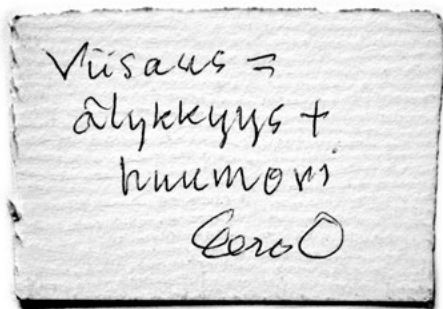 Viisaus =
älykkyys +
huumori
Eero O